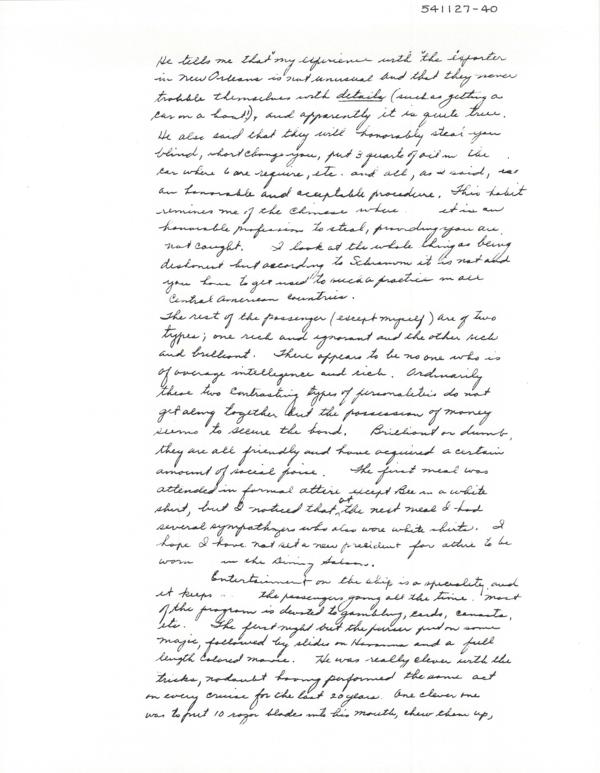 541127-40
He tells me that "my experience with "the exporter
in New Orleans is not unusual and that they never
trobble themselves with details (such as getting a
car on a boat!), and apparently it is quite true.
He also said that they will honorably steal you
blind, short change you, put 3 quarts of oil in the
car where 6 are require, etc. and all, as I said, is
an honorable and acceptable procedure. This habit
remines me of the Chinese where it is an
honorable profession to steal, providing you are
not caught. I look at the whole thing as being
dishonest but according to Schramm it is not and
you have to get used to such a practice in all
Central American countries.
The rest of the passenger (except myself) are of two
types; one rich and ignorant and the other rich
and brilliant. There appears to be no one who is
of average intelligence and rich. Ordinarily
these two contrasting types of personalities do not
get along together but the possession of money
seems to secure the bond. Brilliant or dumb,
they are all friendly and have acquired a certain
amount of social poise. The first meal was
attended in formal attire except Bee in a white
shirt, but I noticed that at the next meal I had
several sympathyzers who also wore white shirts. I
hope I have not set a new president for attire to be
worn in the Dining Saloon.
Entertainment on the ship is a speciality and
it keeps the passengers going all the time. Most
of the program is devoted to gambling, cards, canasta,
etc. The first night but the purser put on some
magic, followed by slides on Havanna and a full
length colored movie. He was really clever with the
tricks, nodoubt having performed the same act
on every cruise for the last 20 years. One clever one
was to put 10 razor blades into his mouth, chew them up,